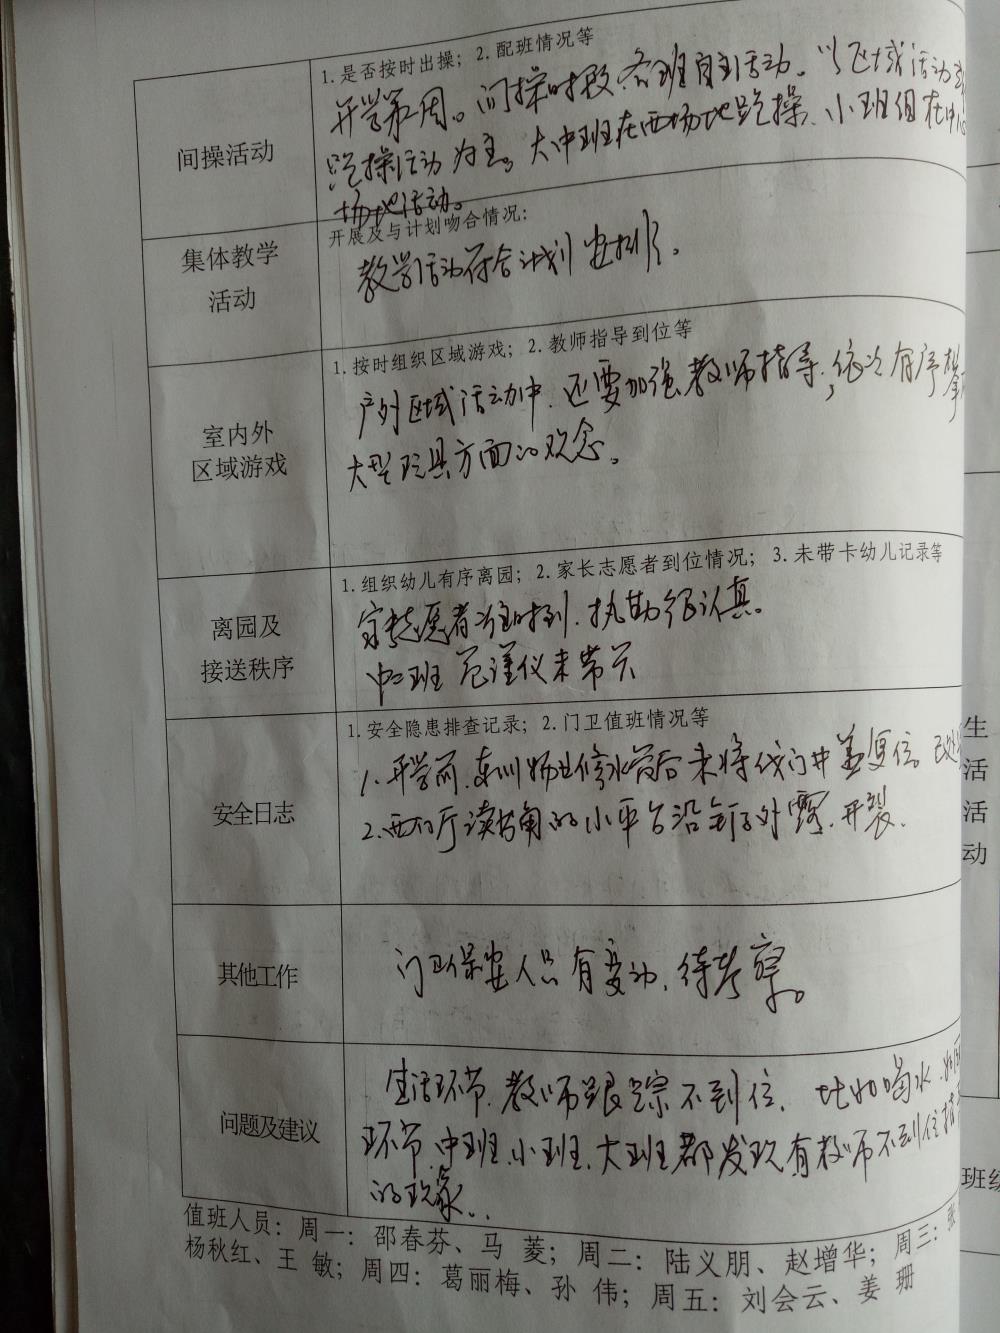 1. 是否按时出操；2. 配班情况等
间操活动
开学第一周。间操时段各班自主活动。以区域活动
跑操活动为主。大中班在西场地跑操、小班组在中心
场地活动。
开展及与计划吻合情况：
集体教学
活动
教学活动符合计划安排。
1. 按时组织区域游戏；2. 教师指导到位等
室内外
区域游戏
户外区域活动中，还要加强教师指导，依次有序
大型玩具方面的观念。
1. 组织幼儿有序离园；2. 家长志愿者到位情况；3. 未带卡幼儿记录等
离园及
接送秩序
家长志愿者准时到、执勤很认真。
中二班 范谨仪未带卡
1. 安全隐患排查记录；2. 门卫值班情况等
安全日志
1. 开学前，物业修水管后未将阀门井盖复位。已
2. 西门厅读书角的小平台沿钉子外露、开裂、
其他工作
门卫保安人员有变动，待考察。
问题及建议
生活环节，教师跟踪不到位，比如喝水、如厕
环节、中班、小班、大班都发现有教师不到位指
的现象..
值班人员：周一：邵春芬、马 菱；周二：陆义朋、赵增华；周三：张
杨秋红、王 敏；周四：葛丽梅、孙 伟；周五：刘会云、姜 珊
生
活
活
动
班级